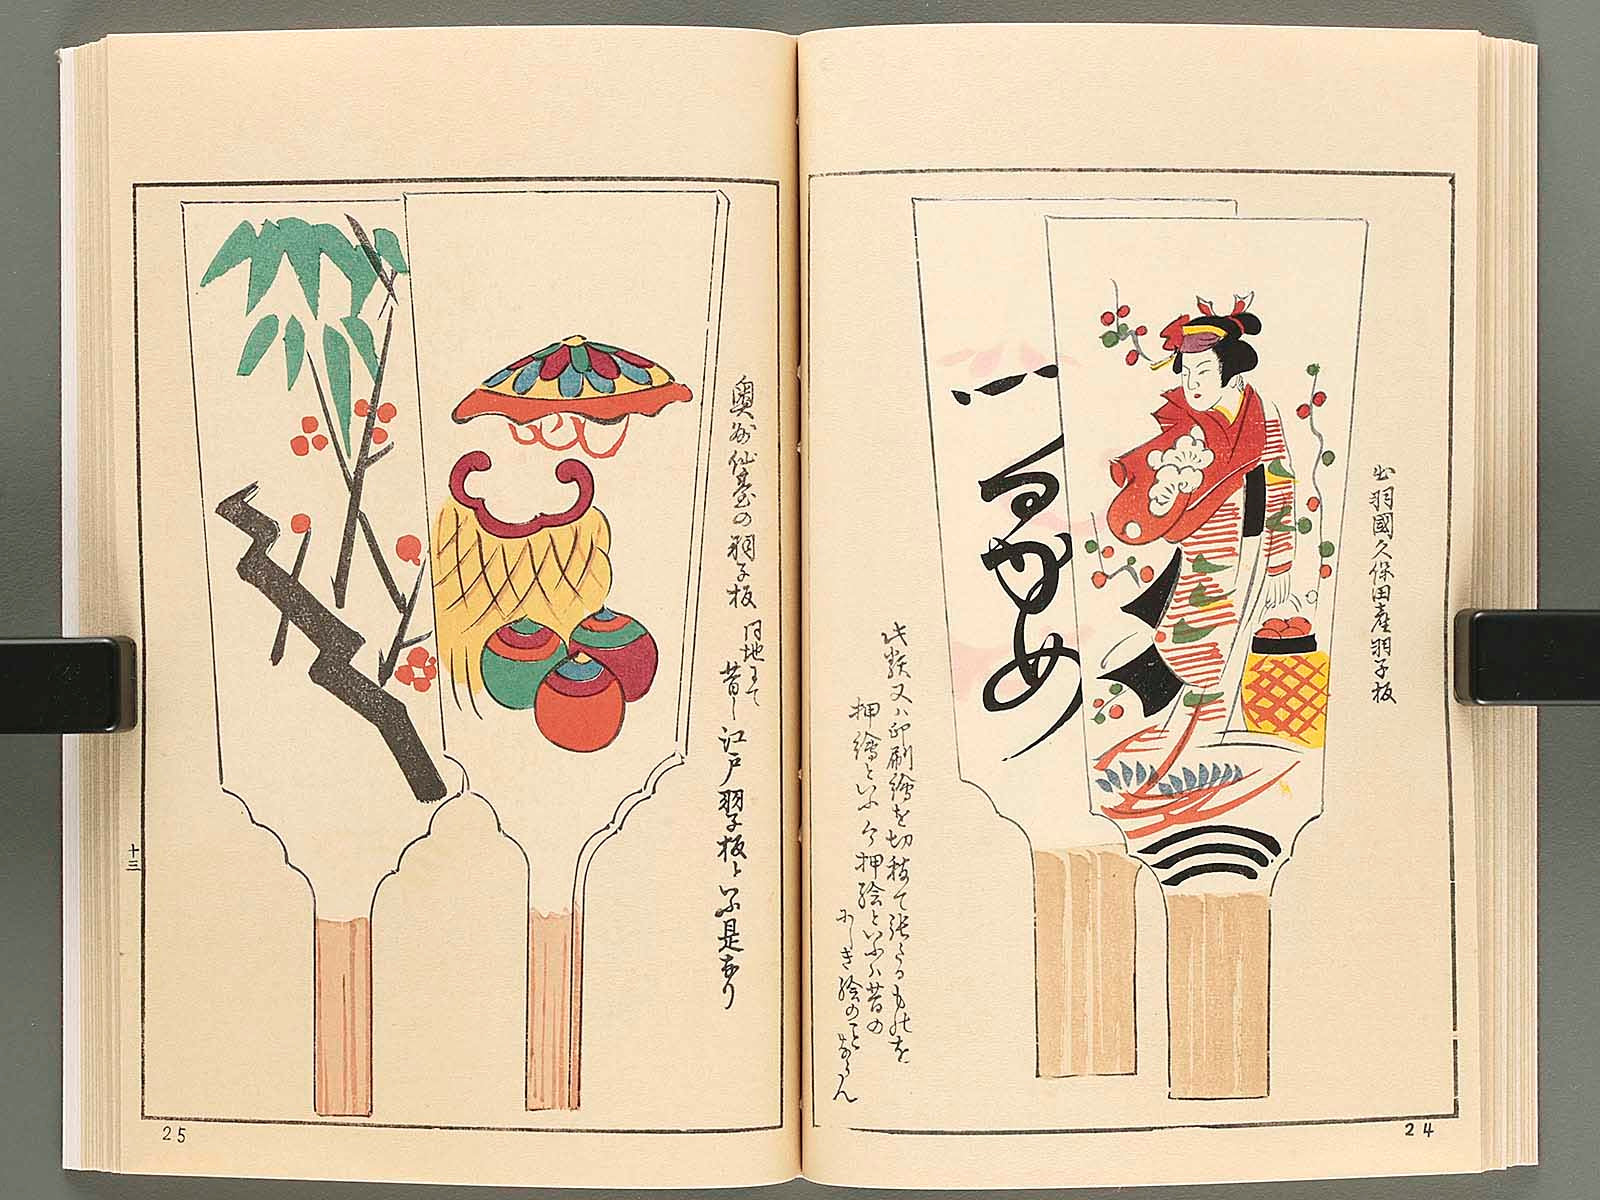 出羽國久保田産羽子板
つるかめ
此類又ハ印刷繪を切抜て張たるものを
押繪といふ今押絵といふハ昔の
おしき絵のことならん
24
奥州仙臺の羽子板 同地にて
昔し江戸羽子板といふ是なり
十三
25